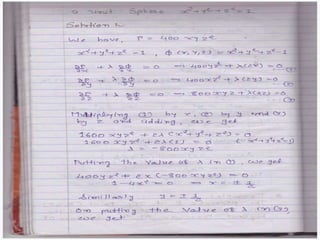 a unit Sphere x²+y²+z²=1
Solution :-
We have, T = 400 xyz²
x²+y²+z² = 1 , φ(x,y,z) = x²+y²+z²-1
∂F/∂x + λ ∂φ/∂x = 0 ⇒ 400yz²+λ(2x)=0
∂F/∂y + λ ∂φ/∂y = 0 ⇒ 400xz²+λ(2y)=0
∂F/∂z + λ ∂φ/∂z = 0 ⇒ 800xyz+λ(2z)=0
Multiplying (1) by x, (2) by y and (3)
by z and adding, we get
1600xyz²+2λ(x²+y²+z²)=0
1600xyz²+2λ(1)=0 (∵ x²+y²+z²=1)
λ = -800xyz²
Putting the value of λ in (1), we get
400yz²+2x(-800xyz²)=0
1-4x²=0 ⇒ x=±1/2
Similarly y=±1/2
On putting the value of λ in (3),
we get